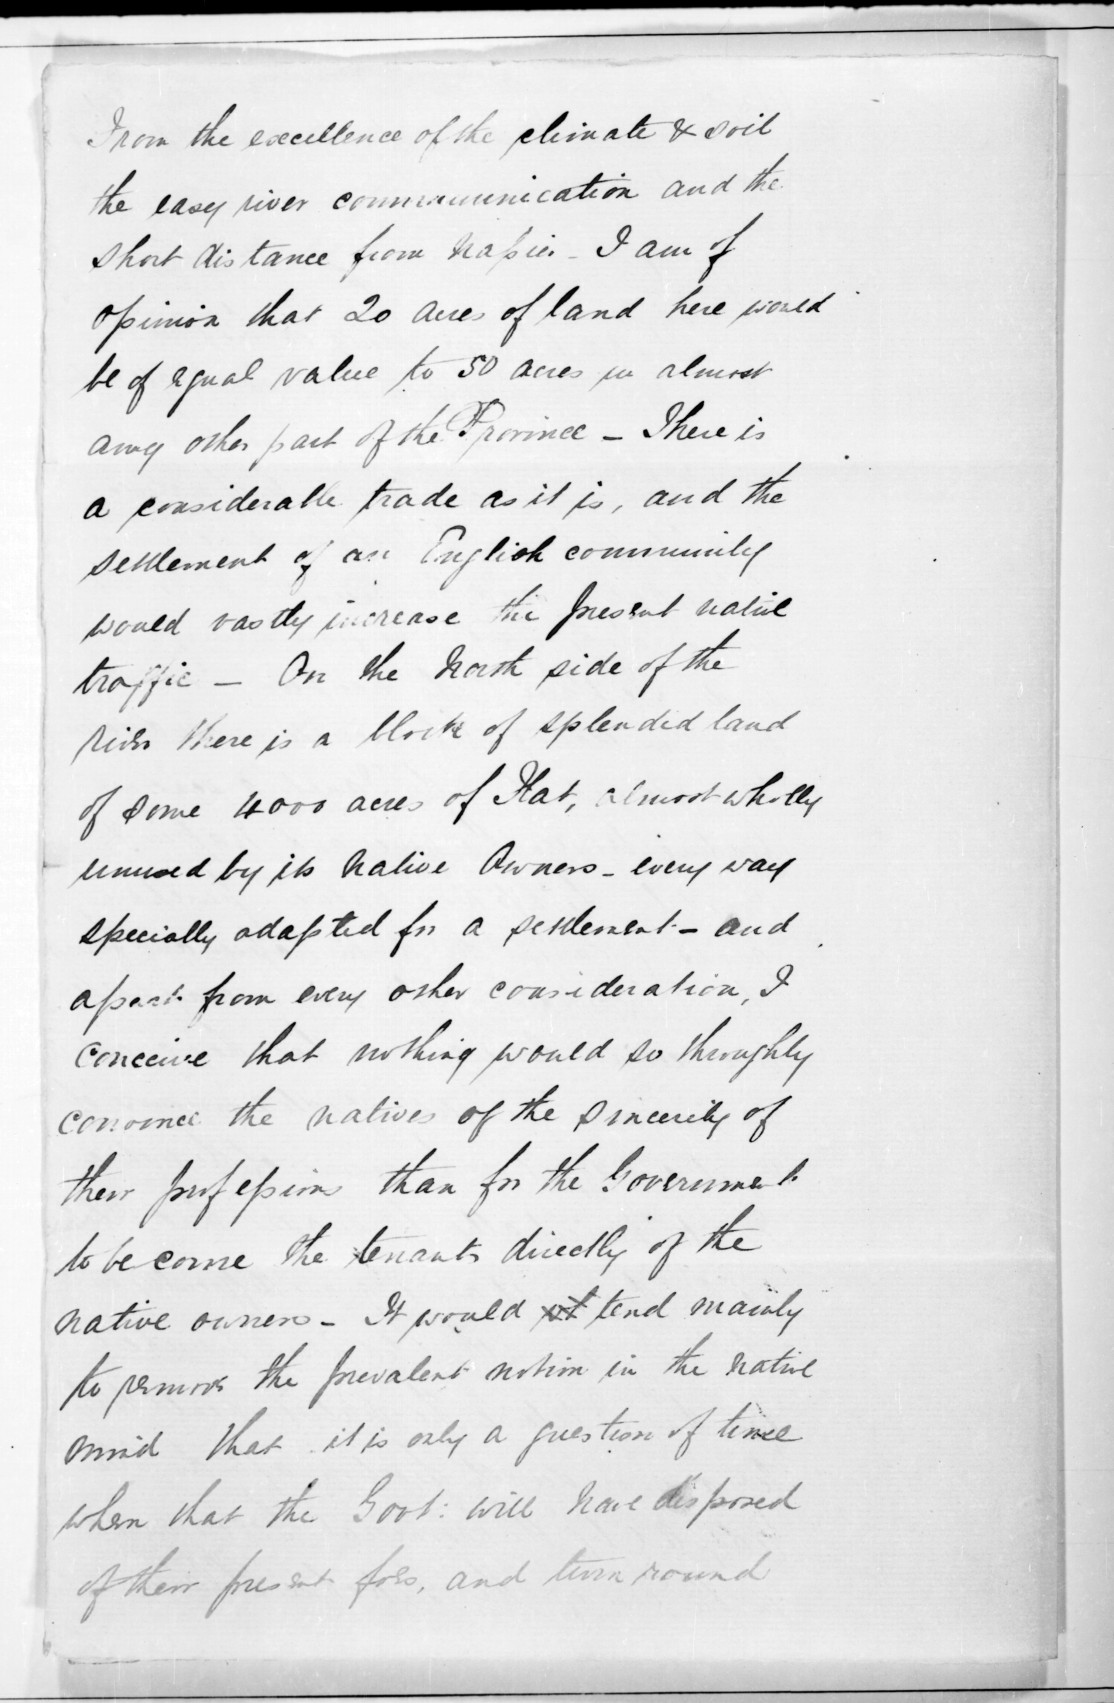 From the excellence of the climate & soil
the easy river communication and the
short distance from Napier - I am of
opinion that 20 acres of land here would
be of equal value to 50 acres in almost
any other part of the Province - There is
a considerable trade as it is, and the
settlement of an English community
would vastly increase the present native
traffic - On the North side of the
river there is a block of splendid land
of some 4000 acres of Flat, almost wholly
unused by its Native Owners - every way
specially adapted for a settlement - and
apart from every other consideration, I
conceive that nothing would so throughly
convince the natives of the sincerity of
their professions than for the Government
to become the tenants directly of the
native owners - It would tend mainly
to remove the prevalent notion in the native
mind that it is only a question of time
when that the Govt: will have disposed
of their present foes, and turn round